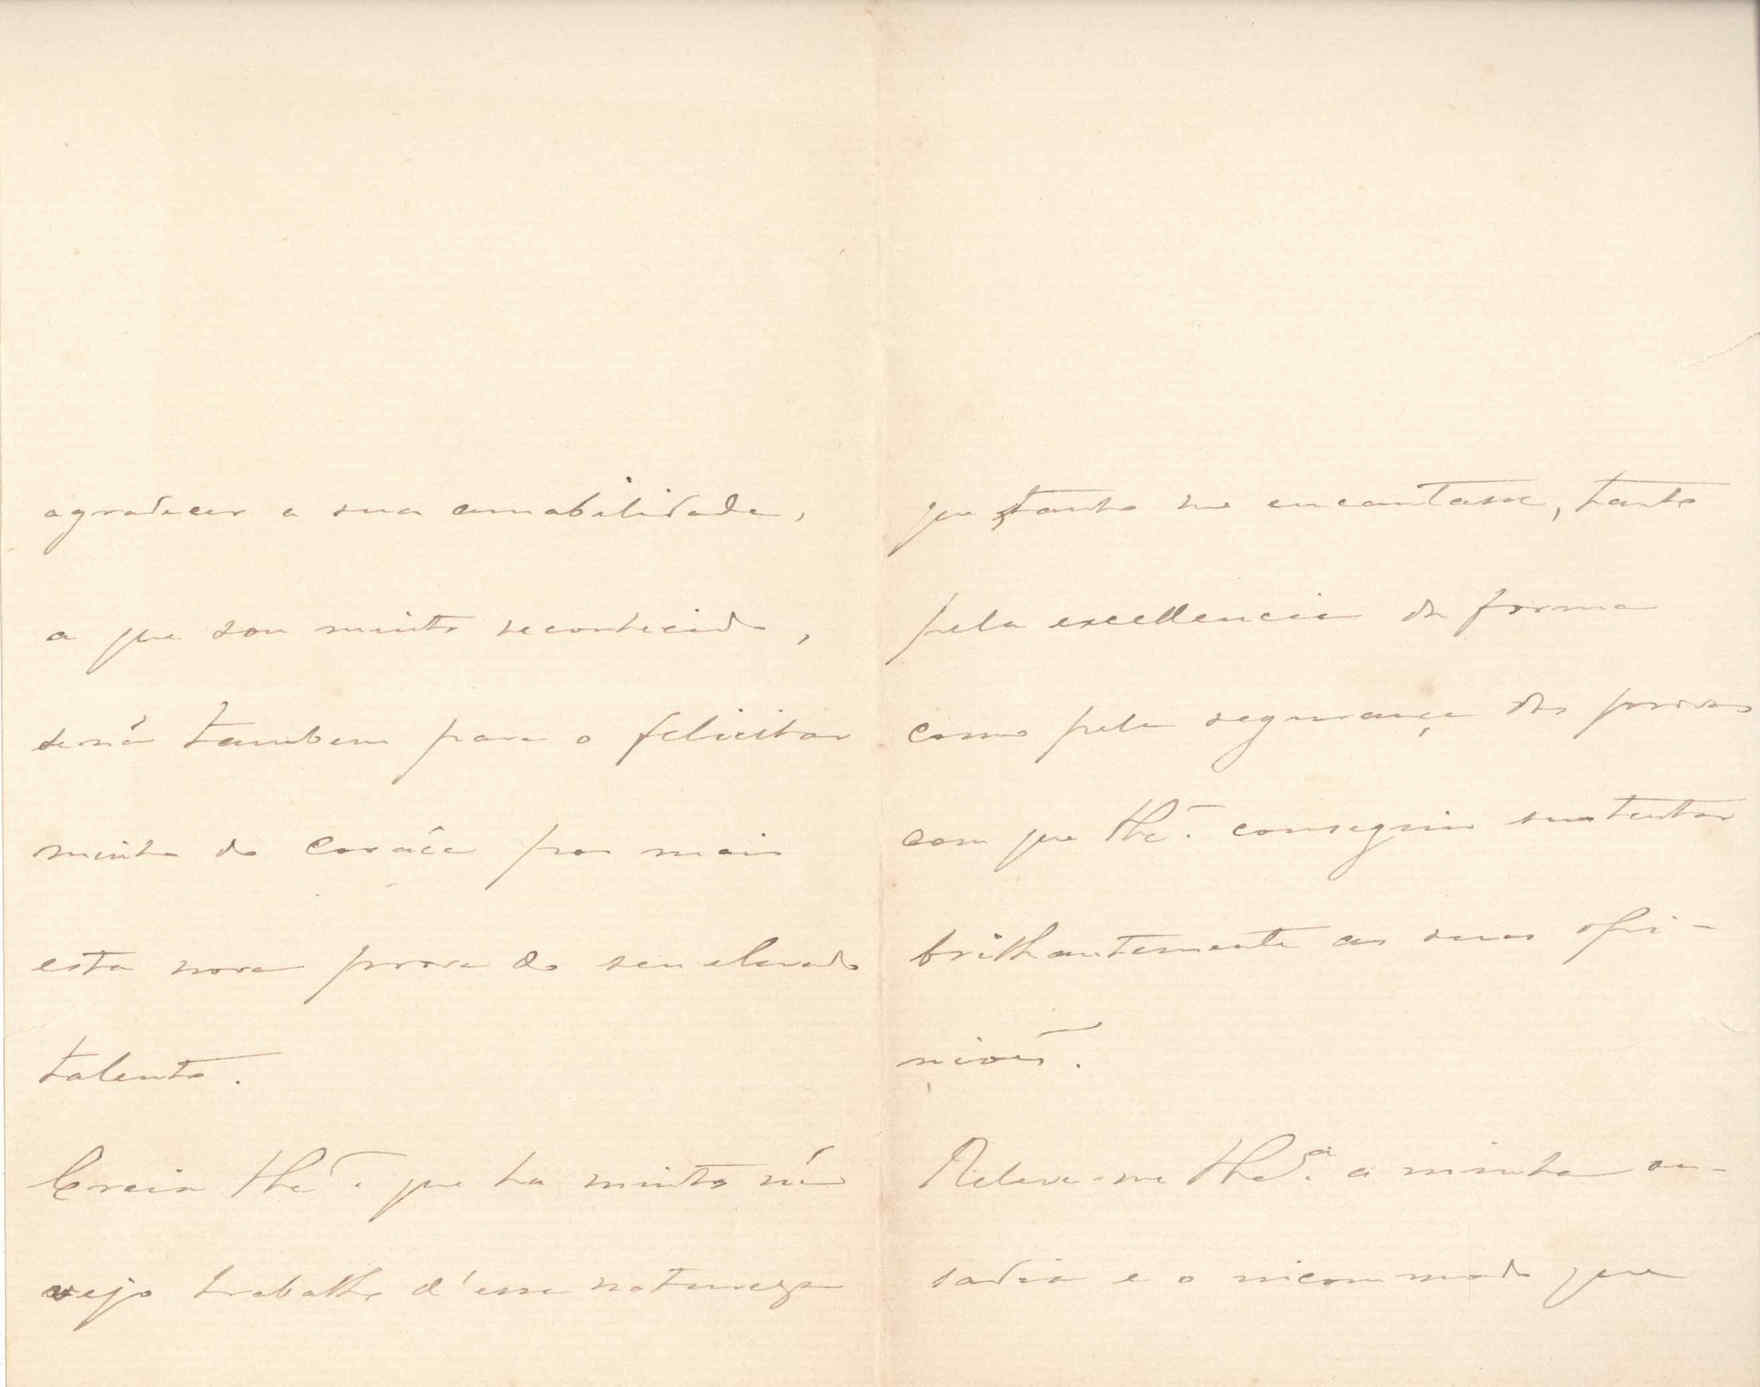 agradecer a sua amabilidade,
a que sou muito reconhecido,
senão tambem para o felicitar
muito do coração por mais
esta nova prova do seu elevado
talento.
Creia que ha muito não
vejo trabalho d'essa natureza
que tanto me encantasse, tanto
pela excellencia da forma
como pela segurança das provas
com que conseguiu sustentar
brilhantemente as suas opi-
niões.
Releve-me a minha ou-
sadia e o incommodo que